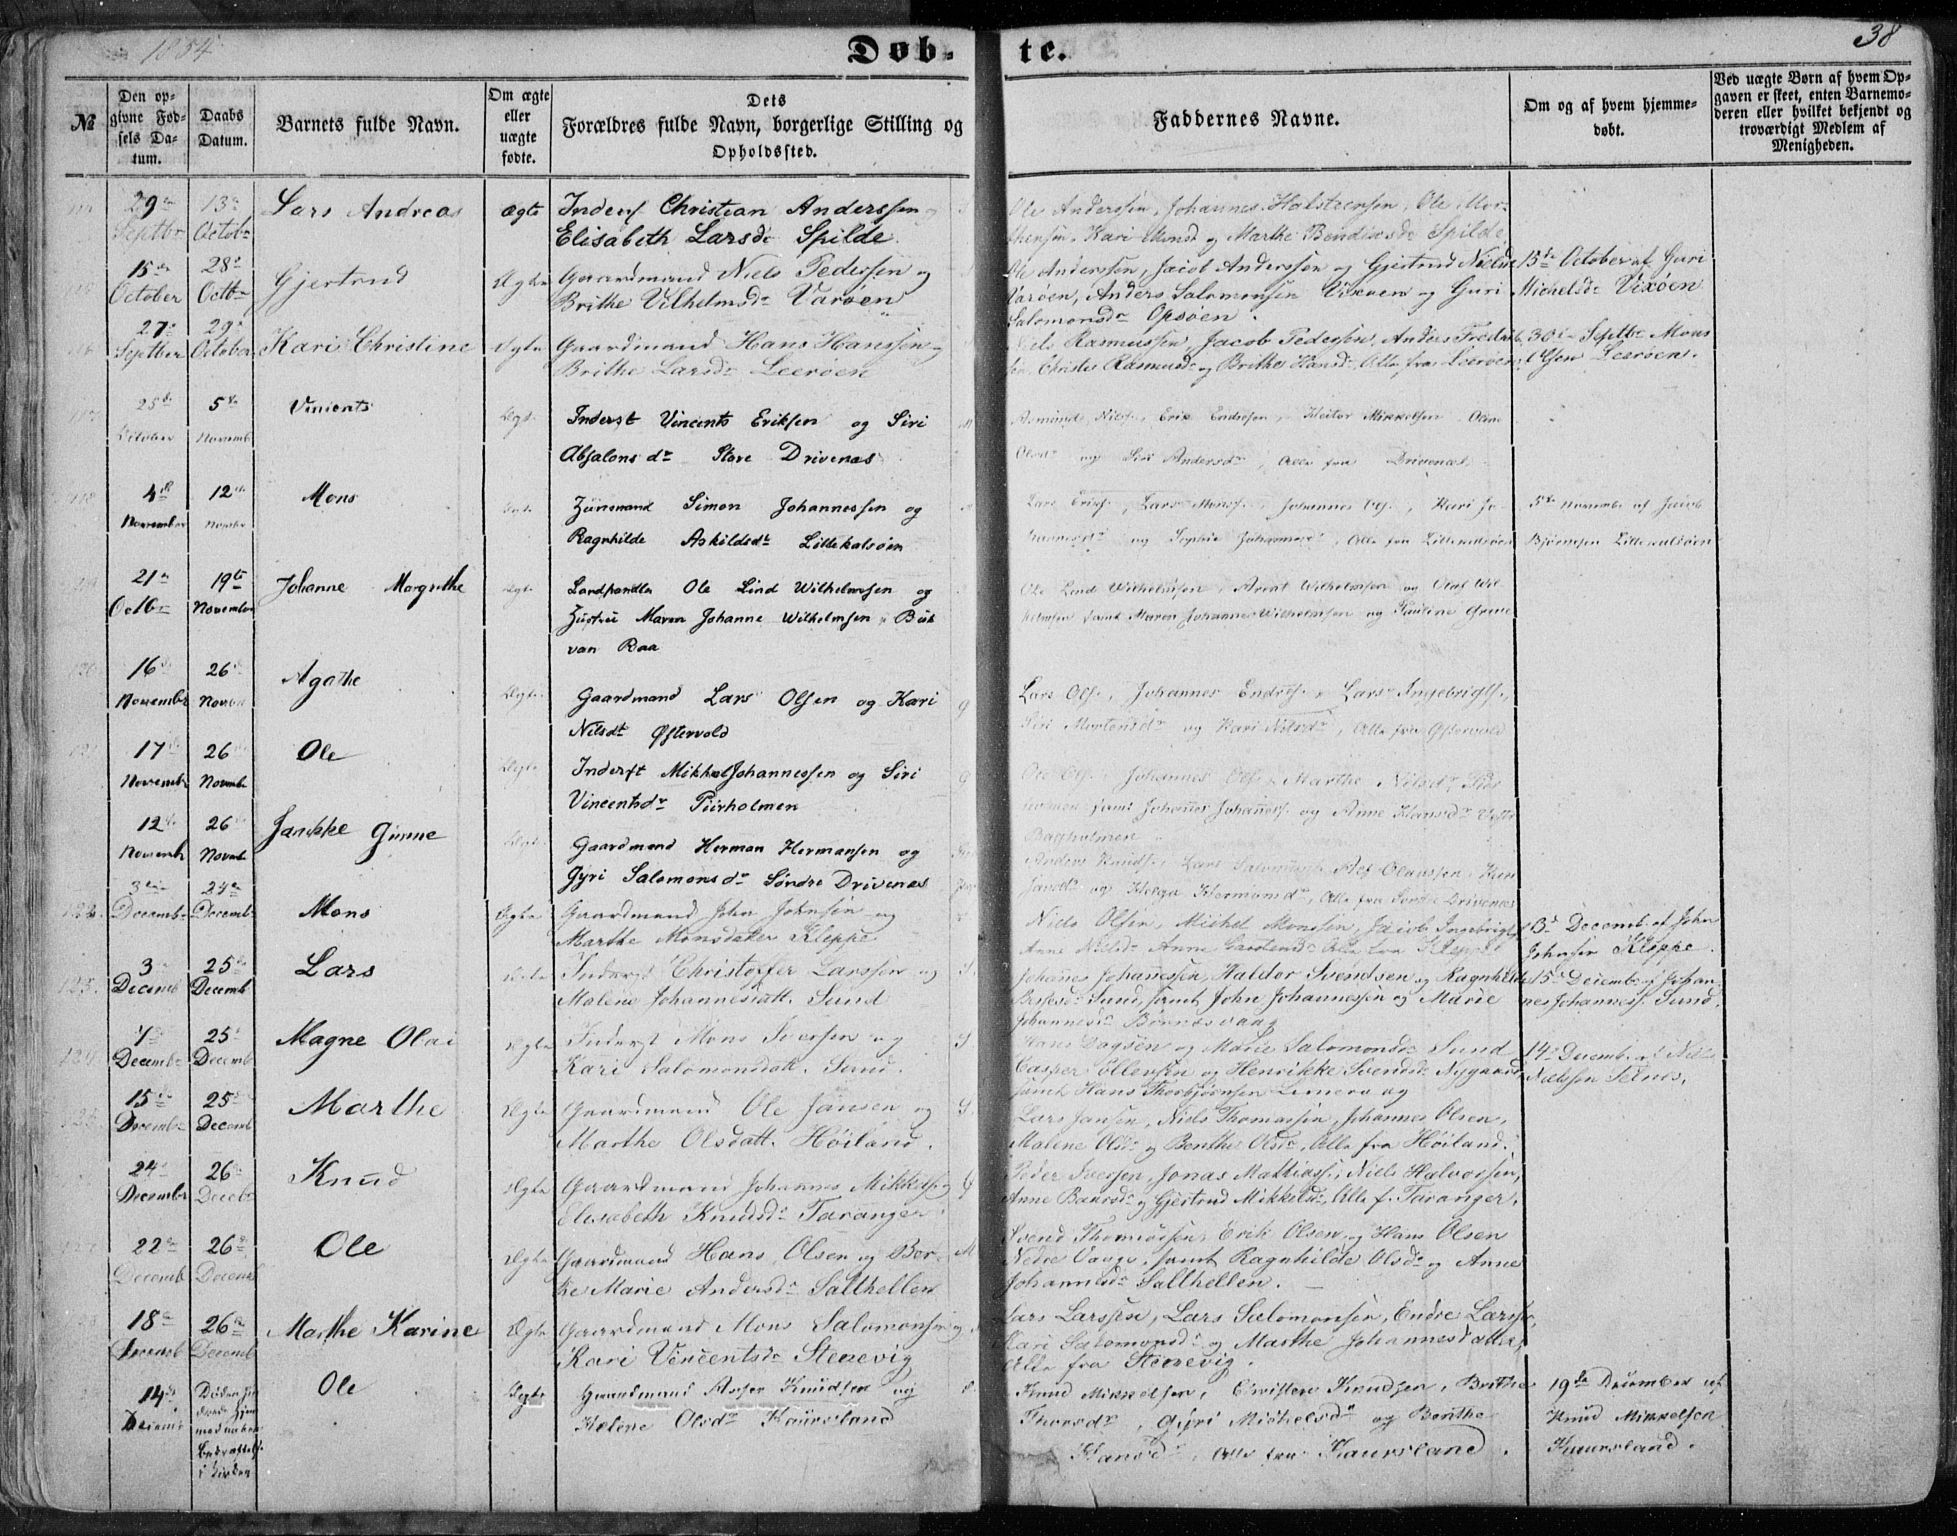 1854
Døb-
te.
38
№
Den op-
givne Fød-
sels Da-
tum.
Daabs
Datum.
Barnets fulde Navn.
Om ægte
eller
uægte
fødte.
Dets
Forældres fulde Navn, borgerlige Stilling og
Opholdssted.
Faddernes Navne.
Om og af hvem hjemme-
døbt.
Ved uægte Børn af hvem Op-
gaven er skeet, enten Barnemo-
deren eller hvilket bekjendt og
troværdigt Medlem af
Menigheden.
29de Septbr
13de Octobr
Lars Andreas
ægte
Inderst Christian Anderssen og
Elisabeth Larsdr Spilde
Ole Anderssen, Johannes Halstensen, Ole Mor-
thensen, Kari Monsd og Marthe Bendixsdr Spilde
15de October
28de Octbr
Gjertrud
Ægte
Gaardmand Niels Pedersen og
Brithe Vilhelmsdr Varøen
Ole Anderssen, Jacob Anderssen og Gjertrud Nielsdr
Varøen, Anders Salomonsen Vixøen og Guri
Salomonsdr Opsøen.
15de October af Guri
Michelsdr Vixøen
27de Septber
29de October
Kari Christine
Ægte
Gaardmand Hans Hanssen og
Brithe Larsdr Leerøen
Niels Rasmussen, Jacob Pedersen, Anders Fredrik-
sen, Christi Rasmusdr og Brithe Hansdr, Alle fra Leerøen.
30te Septbr Mons
Olsen Leerøen.
25de October
5te Novemb
Vincents
Ægte
Inderst Vincents Eriksen og Siri
Absalonsdr Store Drivenæs
Asmund Nils, Erik Endresen, Heitor Mikkelsen, Anne
Olsdr og Siri Andersdr, Alle fra Drivenæs.
4de November
12te Novbr
Mons
Ægte
Huusmand Simon Johannessen og
Ragnhilde Askildsdr Lillekalsøen
Lars Eriks, Lars Mons, Johannes Ols, Kari Jo-
hannesdr og Sophie Johannesdr, Alle fra Lillekalsøen
5te Novemb af Jacob
Bjørnsen Lillekalsøen
21de Octbr
19de November
Johanne Margrethe
Ægte
Landhandler Ole Lind Wilhelmsen og
Hustru Maren Johanne Wilhelmsen, Buk
van Raa
Ole Lind Wilhelmsen, Arent Wilhelmsen og Olaf Wil-
helmsen samt Maren Johanne Wilhelmsen og Pauline Grene
16de November
26de Novbr
Agathe
Ægte
Gaardmand Lars Olsen og Kari
Nilsdr Østervold
Lars Ols, Johannes Endres, Lars Ingebrigts,
Siri Mortensdr og Kari Nilsdr, Alle fra Østervold
17de Novembr
26de Novembr
Ole
Ægte
Inderst Mikkel Johannessen og Siri
Vincentsdr Piirholmen
Ole Ols, Johannes Ols, Marthe Nilsdr Piir-
holmen samt Johannes Johannes og Anne Hansdr
Bagholmen
12te Novembr
26de Novbr
Janikke Gurine
Ægte
Gaardmand Herman Hermansen og
Gyri Salomonsdr Søndre Drivenæs
Anders Knuds, Lars Salomons, Alef Olaussen, Kari
Jansdr og Helga Hermansdr, Alle fra Søndre Drivenæs
122.
3die Decembr
24de Decemb
Mons
Ægte
Gaardmand John Johnsen og
Marthe Monsdatter Kleppe
Niels Olsen, Michel Monssen, Jacob Ingebrigts,
Anne Nielsdr, Anne Larsdr Alle fra Kleppe
13de Decemb. af John
Johnsen Kleppe.
123.
3die Decemb
25de Decemb
Lars
Ægte
Inderst Christoffer Larssen og
Malene Johannesdatt. Sund
Johannes Johannessen, Haldor Svendsen og Ragnhilde
Sund, samt John Johannessen og Marie
Johannesdr Børnæsvaag
15de Decembr af Johan-
nes Johanness. Sund.
124
7de Decembr
25de Decemb
Magne Olai
Ægte
Inderst Mons Iversen og
Kari Salomonsdatt. Sund.
Hans Dagsen og Marie Salomonsdr Sund
Casper Ellensen og Henrikke Svendsdr Nygaard
samt Hans Thorbjørnsen
14de Decemb af Niels
Nielssen Telnes.
125
15de Decembr
25de Decemb
Marthe
Ægte
Gaardmand Ole Jansen og
Marthe Olsdatt. Høiland.
Lars Jansen, Niels Thomassen, Johannes Olsen,
Malene Olsdr og Benthe Olsdr, Alle fra Høiland.
24de December
26de Decebr
Knud
Ægte
Gaardmand Johannes Mikkels og
Elisabeth Knudsdr Taranger.
Peder Iversen, Jonas Mathiass, Niels Halvorsen,
Anne Baarsdr og Gjertrud Mikkelsdr, Alle f. Taranger.
127
22de Decemb
26de Decemb
Ole
Ægte
Gaardmand Hans Olsen og Ber-
the Marie Andersdr Salthellen
Svend Thomassen, Erik Olsen og Hans Olsen
Nedre Vaage, samt Ragnhilde Olsdr og Anne
Johannesdr Salthellen.
128
18de Decemb
26de Decemb
Marthe Karine
Ægte
Gaardmand Mons Salomonsen og
Kari Vincentsdr Stenevig
Lars Larssen, Lars Salomonsen, Endre Larssen,
Kari Salomonsdr og Marthe Johannesdatter,
Alle fra Stenevig.
14de Decemb
Ole
Ægte
Gaardmand Asser Knudsen og
Helene Olsdr Kaursland
Knud Mikkelsen, Christen Knudsen, Brithe
Thorsdr, Gyri Michelsdr og Benthe
Hansdr, Alle fra Kaursland.
19de December af
Knud Mikkelsen
Kaursland.